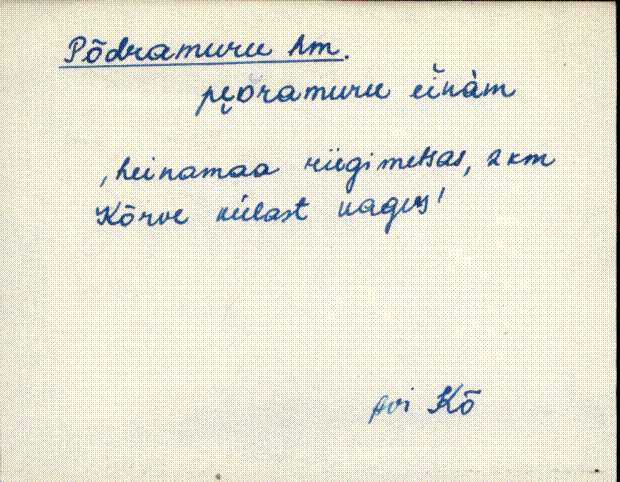 Põdramuru hm.
pe̮ŏramuru eĭnàm
‚heinamaa riigimetsas, 2 km
Kõrve külast kagus'
Avi Kõ